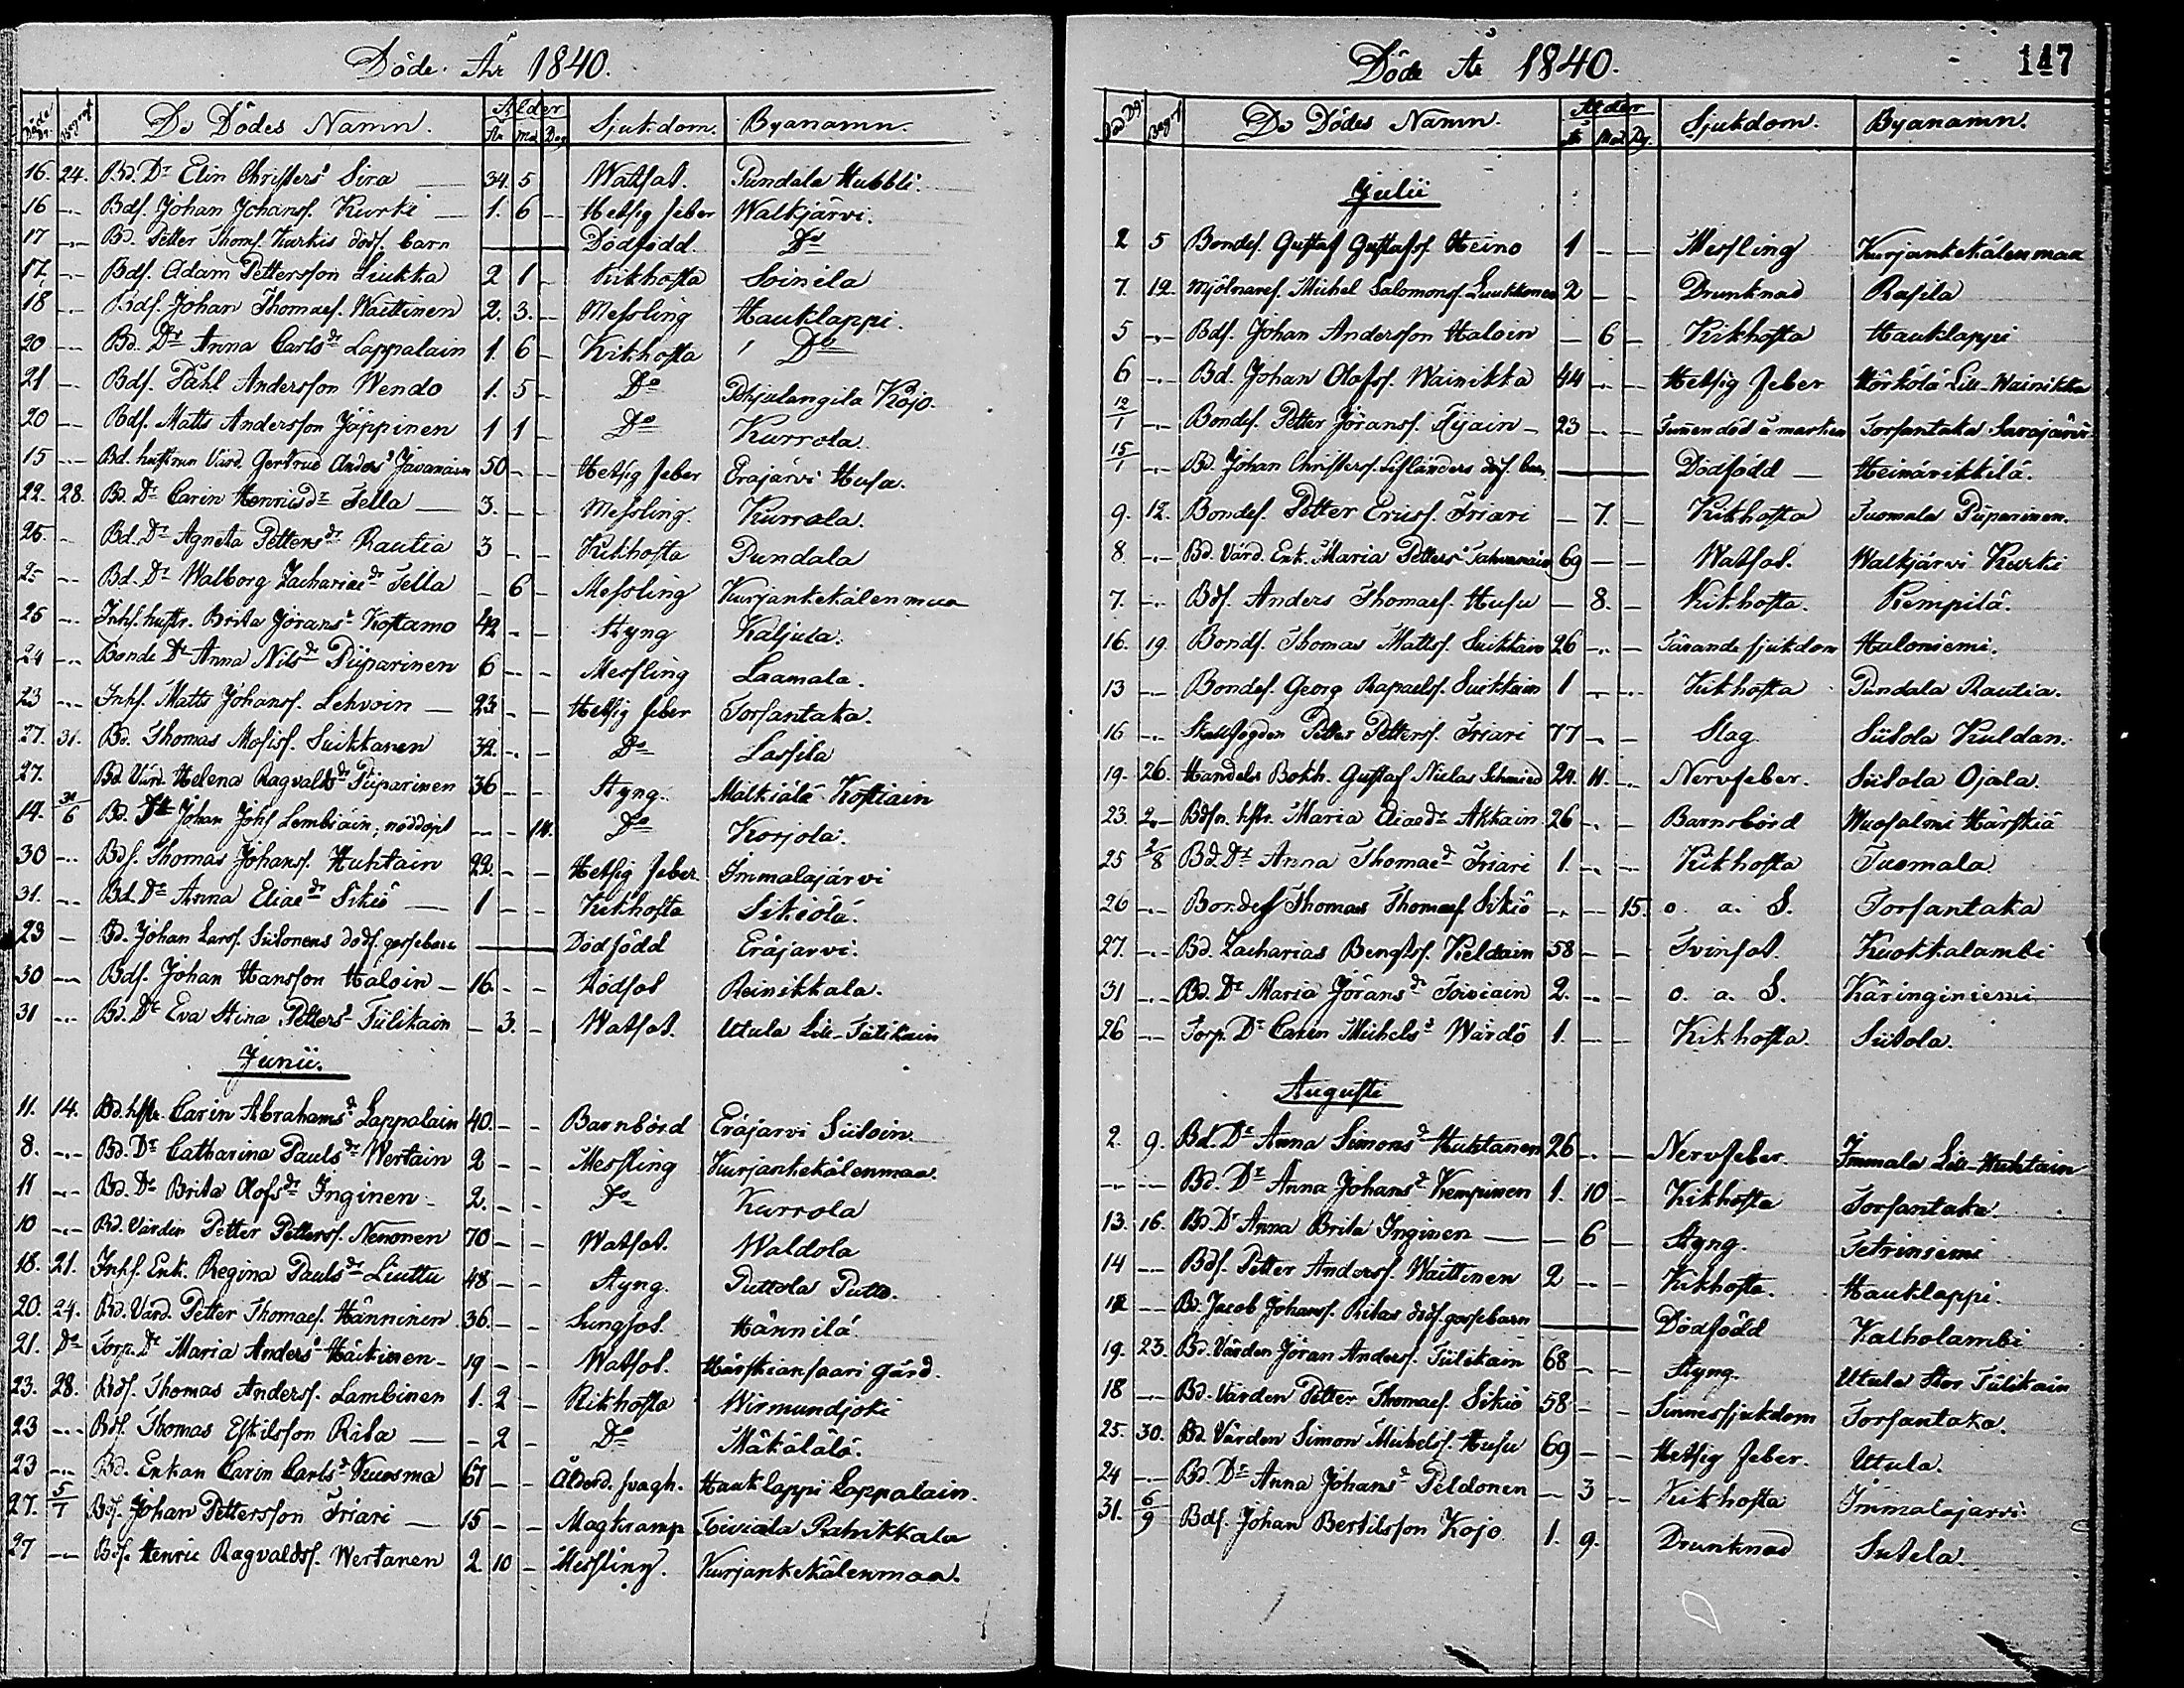 Döde År 1840.
Döde Dr. Begraf. De Dödes Namn. Ålder År Mad Dag Sjukdom. Byanamn.
16. 24. Bd. Dr Elin Christersdr Sira — 34. 5 Wattsot. Pundala Hubbli.
16 -.- Bdf. Johan Johansf. Kurki — 1. 6 — Hetsig feber Walkjärvi.
17 -.- Bd. Petter Thomf. Kurkis dödf. barn — Dödfödd. Do
17. -.- Bdf. Adam Pettersson Liukka 2 1 - Kikhosta Soinila
18 -.- Bdf. Johan Thomaef. Waittinen 2. 3. - Messling Hauklappi.
20 -.- Bd. Dr Anna Carlsdr Lappalain 1. 6 - Kikhosta Do
21 -.- Bdf. Påhl Andersson Wendo 1. 5 - Do Pohjalangila Kojo.
20 -.- Bdf. Matts Andersson Jäppinen 1 1 - Do Kurrola.
15 -.- Bd. hustrun Värd. Gertrud Andersdr Javanain 50 - - Hetsig feber Eräjärvi Husa.
22. 28. Bd Dr Carin Henricsdr Tella — 3. - - Messling. Kurrola.
25. - Bd. Dr Agneta Pettersdr Rautia 3 - - Kikhosta Pundala
25 -.- Bd. Dr Walborg Zachariaedr Tella - 6 - Messling Kurjankekälenmaa
25 -.- Inhf. hustr. Brita Jöransdr Kostamo 42 - - Styng Käljula.
24 -.- Bonde Dr Anna Nilsdr Piiparinen 6 - - Messling Laamala.
23 -.- Inhf. Matts Johansf. Lehvoin — 23 - - Hetsig feber Torsantaka.
27. 31. Bd. Thomas Mosisf. Suikkanen 32. - - Do Lassila
27. Bd Värd. Helena Ragvaldsdr Piiparinen 36 - - Styng. Mälkiälä Kostiain
14. 31/6 Bd. Johan Johf Lembiäin, nöddöpt - - 14. Do Korjola.
30 -.- Bdf. Thomas Johansf. Huhtain 22. - - Hetsig feber. Immalajärvi
31. -.- Bd. Dr Anna Eliaedr Sikiö — 1 - - Kikhosta Sikiölä.
23 - Bd. Johan Larsf. Siitonens dödf. gossebarn — Dödfödd Eräjärvi.
30 -.- Bdf. Johan Hansson Haloin — 16. - - Rödsot Reinikkala.
31 -.- Bd. Dr Eva Stina Pettersdr Tiilikain - 3. - Wattsot. Utula Lill-Tiilikain
Junii.
11. 14. Bd. hstr. Carin Abrahamsdr Lappalain 40. - - Barnbörd Eräjärvi Siitoin.
8. -.- Bd. Dr Catharina Paulsdr Wertain 2 - - Messling Kurjankekälenmaa.
11 -.- Bd. Dr Brita Olofsdr Inginen - 2. - - Do Kurrola
10 -.- Bd. Värden Petter Pettersf. Nenonen 70 - - Wattsot. Waldola
18. 21. Inhf. Enk. Regina Paulsdr Liuttu 48 - - Styng. Puttola Putto.
20. 24. Bd. Värd. Petter Thomaef. Hänninen 36. - - Lungsot. Hännilä.
21. Do Torp. Dr Maria Andersdr Häckinen - 19 - - Wattsot. Härskiansaari gård.
23. 28. Bdf. Thomas Andersf. Lambinen 1. 2 - Kikhosta Wirmundjoki
23 -.- Bdf. Thomas Eskilsson Rita — - 2 - Do Mäkälälä.
23 -.- Bd. Enkan Carin Carlsdr Kuosma 67 - - Ålderd. svagh. Hauklappi Lappalain.
27. 5/7 Bdf. Johan Pettersson Friari — 15 - - Magkramp Toiviala Rahikkala
27 -.- Bdf. Henric Ragvaldsf. Wertanen 2. 10 - Messling. Kurjankekälenmaa.
Döde År 1840. 147
Död Dg. Begraf. De Dödes Namn. Ålder År Mad. Dg. Sjukdom. Byanamn.
Julii
2 5 Bondef. Gustaf Gustafsf. Heino 1 - - Messling Kurjankekälenmaa
7. 12. Mjölnaref. Michel Salomonsf. Luukkonen 2 - - Drunknad Rasila
5 -.- Bdf. Johan Andersson Haloin - 6 - Kikhosta Hauklappi
6 -.- Bd. Johan Olofsf. Wainikka 44 - - Hetsig feber Hörkölä Lill-Wainikka
12/1 -.- Bondef. Petter Jöransf. Äijäin - 23 - - Funnen död å marken Torsantaka Sarajärvi
15/1 -.- Bd. Johan Christersf. Lifländers döf. barn — Dödfödd — Heinärikkilä.
9. 12. Bondef. Petter Ericsf. Friari - 7. - Kikhosta Tuomala Piiparinen.
8. -.- Bd. Värd. Enk. Maria Pettersdr Tahvanain 69 - - Wattsot. Walkjärvi Kurki
7. -.- Bdf. Anders Thomaef. Husu - 8. - Kikhosta. Kempilä.
16. 19. Bondf. Thomas Mattsf. Suikkain 26 -.- - Tärande sjukdom Haloniemi.
13 -.- Bondef. Georg Rapaelsf. Suikkain 1 - - Kikhosta Pundala Rautia.
16 -.- Skallfogden Petter Pettersf. Friari 77 - - Slag Siitola Kuldan.
19. 26. Handels Bokh. Gustaf Niclas Schmied 24. 11. - Nervfeber. Siitola Ojala.
23. 2 Bdfn. hstr. Maria Eliaedr Akkain 26 - - Barnsbörd Wuosalmi Härskiä
25 2/8 Bd. Dr Anna Thomaedr Friari 1. - - Kikhosta Tuomala
26 -.- Bondef Thomas Thomaef. Sikiö - - 15. o. a. S. Torsantaka
27. -.- Bd. Zacharias Bengtsf. Keldain 58 - - Tvinsot. Kuokkalambi
31 -.- Bd. Dr Maria Jöransdr Toiviain 2. - - o. a. S. Käringiniemi
26 -.- Torp. Dr Caren Michelsdr Wärdö 1. - - Kikhosta. Siitola.
Augusti
2. 9. Bd. Dr Anna Simonsdr Huhtanen 26 - - Nervfeber. Immala Lill-Huhtain
-.- -.- Bd. Dr Anna Johansdr Kempinen 1. 10 - Kikhosta Torsantaka.
13. 16. Bd. Dr Anna Brita Inginen — - 6 - Styng. Tetriniemi
14 -.- Bdf. Petter Andersf. Waittinen 2 - - Kikhosta. Hauklappi.
12 -.- Bd. Jacob Johansf. Ritas dödf. gossebarn — Dödfödd Kalholambi
19. 23. Bd. Värden Jöran Andersf. Tiilikain 68 - - Styng. Utula Stor Tiilikain
18 -.- Bd. Värden Petter Thomaef. Sikiö 58 - - Sinnessjukdom Torsantaka.
25. 30. Bd. Värden Simon Michelsf. Husu 69 - - Hetsig feber. Utula.
24 -.- Bd. Dr Anna Johansdr Peldonen - 3 - Kikhosta Immalajärvi
31. 6/9 Bdf. Johan Bertilsson Kojo. 1. 9. Drunknad Sutela.